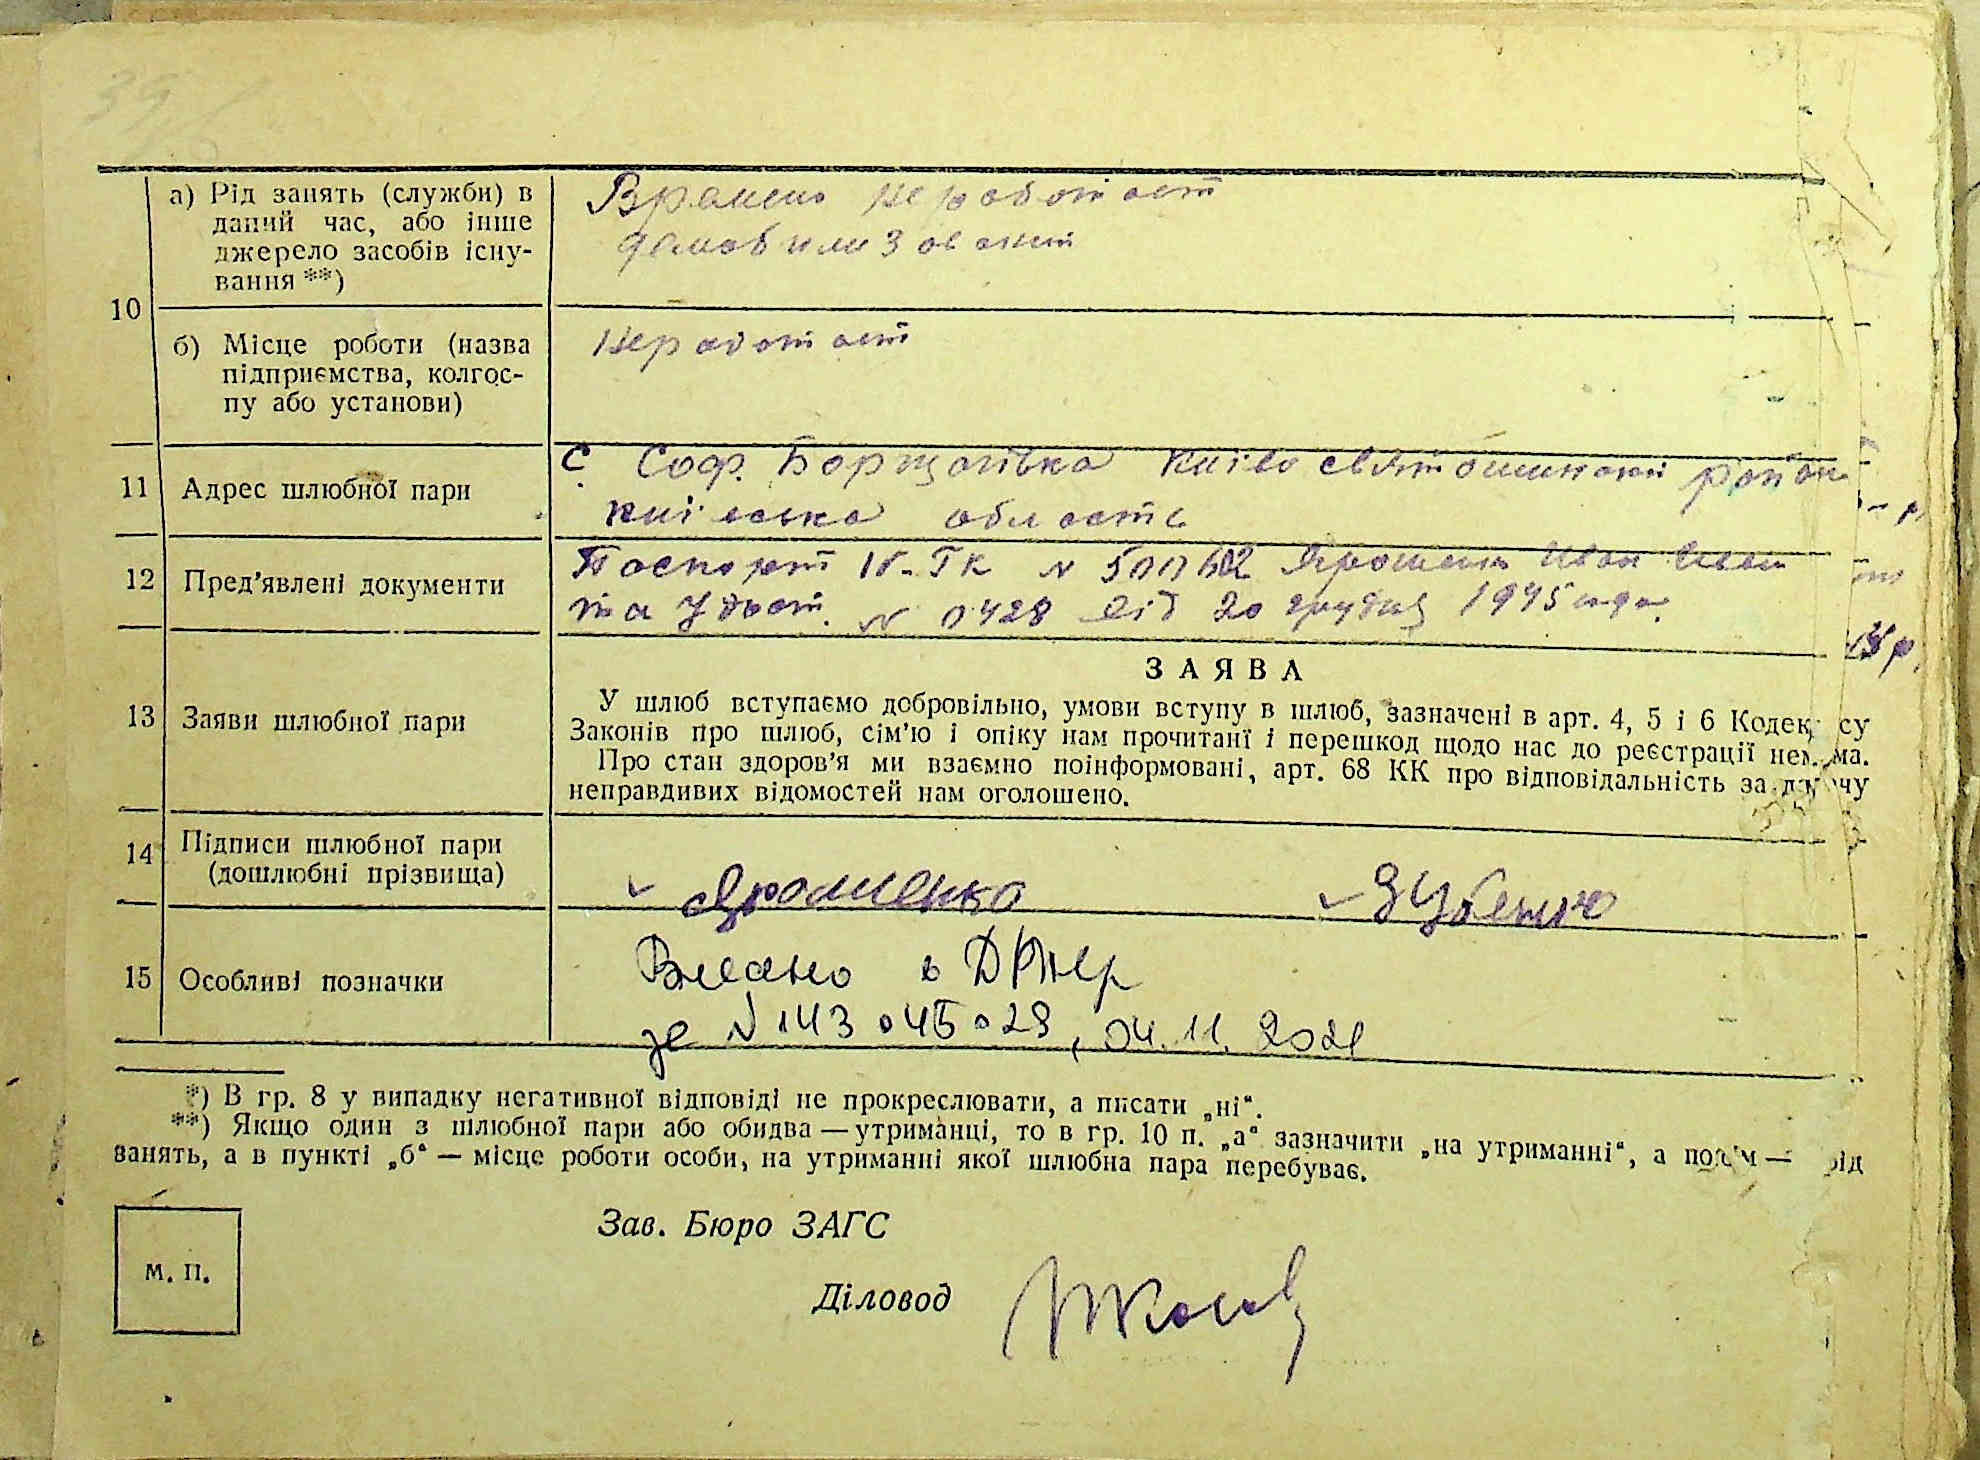 а) Рід занять (служби) в
даний час, або інше
джерело засобів існу-
вання **)
Времено неработает
демобилизован
10
б) Місце роботи (назва
підприємства, колгос-
пу або установи)
Неработает
11 Адрес шлюбної пари
с. Соф. Борщагівка Київо святошинский район
київська область
12 Пред’явлені документи
Паспорт IV-ГК N Ярошенко Иван
та Удост. N 0428 від 20 грудня 1945
13 Заяви шлюбної пари
ЗАЯВА
У шлюб вступаємо добровільно, умови вступу в шлюб, зазначені в арт. 4, 5 і 6 Кодексу
Законів про шлюб, сім’ю і опіку нам прочитані і перешкод щодо нас до реєстрації нема.
Про стан здоров’я ми взаємно поінформовані, арт. 68 КК про відповідальність за дачу
неправдивих відомостей нам оголошено.
14 Підписи шлюбної пари
(дошлюбні прізвища)
Ярошенко
15 Особливі позначки
Внесено в
за N 143 045 029, 04.11.2021
*) В гр. 8 у випадку негативної відповіді не прокреслювати, а писати „ні“.
**) Якщо один з шлюбної пари або обидва — утриманці, то в гр. 10 п. „а“ зазначити „на утриманні“, а потім — рід
занять, а в пункті „б“ — місце роботи особи, на утриманні якої шлюбна пара перебуває.
Зав. Бюро ЗАГС
М. П.
Діловод